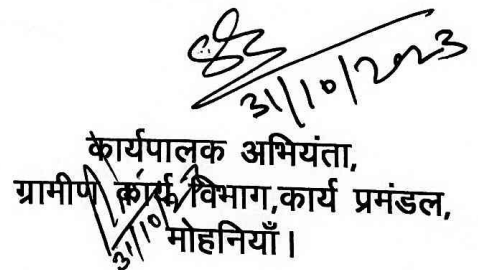 31/10/2023
कार्यपालक अभियंता,
ग्रामीण कार्य विभाग,कार्य प्रमंडल,
31/10
मोहनियाँ।